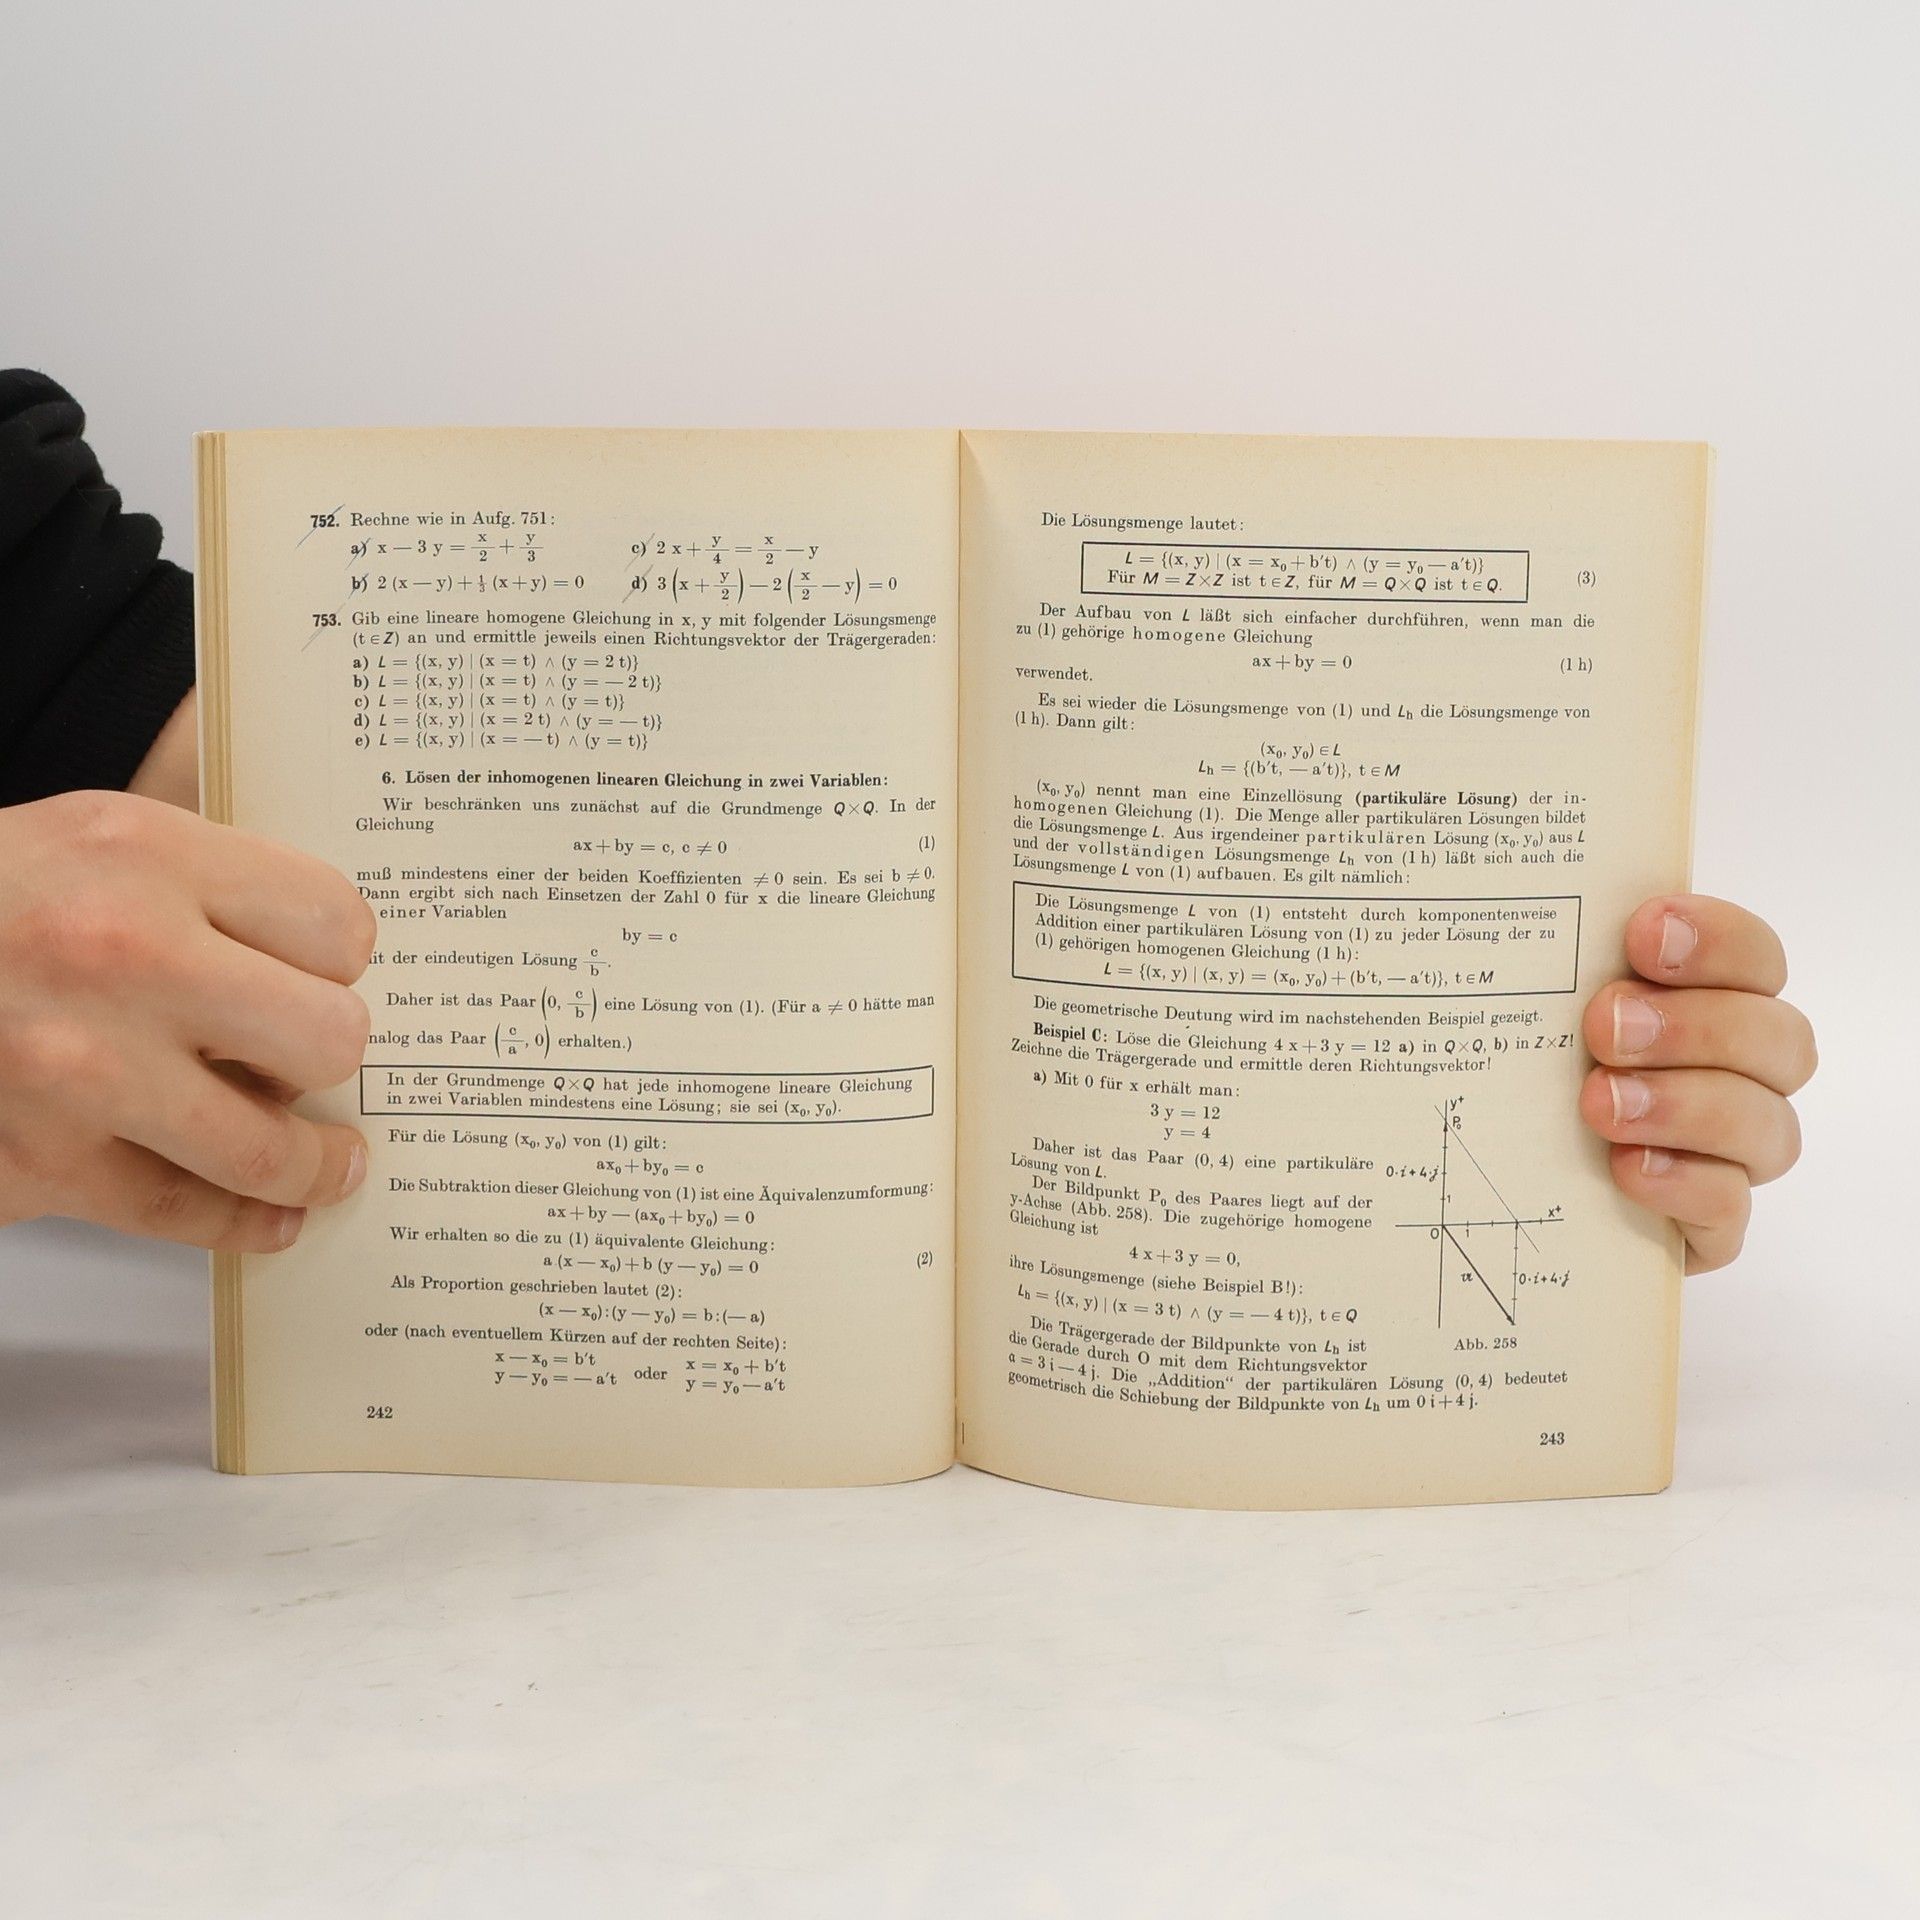 752. Rechne wie in Aufg. 751:
a) x — 3 y = x/2 + y/3
c) 2 x + y/4 = x/2 — y
b) 2 (x — y) + ⅓ (x + y) = 0
d) 3 (x + y/2) — 2 (x/2 — y) = 0
753. Gib eine lineare homogene Gleichung in x, y mit folgender Lösungsmenge
(t ∈ Z) an und ermittle jeweils einen Richtungsvektor der Trägergeraden:
a) L = {(x, y) | (x = t) ∧ (y = 2 t)}
b) L = {(x, y) | (x = t) ∧ (y = — 2 t)}
c) L = {(x, y) | (x = t) ∧ (y = t)}
d) L = {(x, y) | (x = 2 t) ∧ (y = — t)}
e) L = {(x, y) | (x = — t) ∧ (y = t)}
6. Lösen der inhomogenen linearen Gleichung in zwei Variablen:
Wir beschränken uns zunächst auf die Grundmenge Q×Q. In der
Gleichung
ax + by = c, c ≠ 0 (1)
muß mindestens einer der beiden Koeffizienten ≠ 0 sein. Es sei b ≠ 0.
Dann ergibt sich nach Einsetzen der Zahl 0 für x die lineare Gleichung
einer Variablen
by = c
it der eindeutigen Lösung c/b.
Daher ist das Paar (0, c/b) eine Lösung von (1). (Für a ≠ 0 hätte man
nalog das Paar (c/a, 0) erhalten.)
In der Grundmenge Q×Q hat jede inhomogene lineare Gleichung
in zwei Variablen mindestens eine Lösung; sie sei (x₀, y₀).
Für die Lösung (x₀, y₀) von (1) gilt:
ax₀ + by₀ = c
Die Subtraktion dieser Gleichung von (1) ist eine Äquivalenzumformung:
ax + by — (ax₀ + by₀) = 0
Wir erhalten so die zu (1) äquivalente Gleichung:
a (x — x₀) + b (y — y₀) = 0 (2)
Als Proportion geschrieben lautet (2):
(x — x₀) : (y — y₀) = b : (— a)
oder (nach eventuellem Kürzen auf der rechten Seite):
x — x₀ = b′t oder x = x₀ + b′t
y — y₀ = — a′t y = y₀ — a′t
242
Die Lösungsmenge lautet:
L = {(x, y) | (x = x₀ + b′t) ∧ (y = y₀ — a′t)}
Für M = Z×Z ist t ∈ Z, für M = Q×Q ist t ∈ Q. (3)
Der Aufbau von L läßt sich einfacher durchführen, wenn man die
zu (1) gehörige homogene Gleichung
ax + by = 0 (1 h)
verwendet.
Es sei wieder die Lösungsmenge von (1) und Lₕ die Lösungsmenge von
(1 h). Dann gilt:
(x₀, y₀) ∈ L
Lₕ = {(b′t, — a′t)}, t ∈ M
(x₀, y₀) nennt man eine Einzellösung (partikuläre Lösung) der in-
homogenen Gleichung (1). Die Menge aller partikulären Lösungen bildet
die Lösungsmenge L. Aus irgendeiner partikulären Lösung (x₀, y₀) aus L
und der vollständigen Lösungsmenge Lₕ von (1 h) läßt sich auch die
Lösungsmenge L von (1) aufbauen. Es gilt nämlich:
Die Lösungsmenge L von (1) entsteht durch komponentenweise
Addition einer partikulären Lösung von (1) zu jeder Lösung der zu
(1) gehörigen homogenen Gleichung (1 h):
L = {(x, y) | (x, y) = (x₀, y₀) + (b′t, — a′t)}, t ∈ M
Die geometrische Deutung wird im nachstehenden Beispiel gezeigt.
Beispiel C: Löse die Gleichung 4 x + 3 y = 12 a) in Q×Q, b) in Z×Z!
Zeichne die Trägergerade und ermittle deren Richtungsvektor!
a) Mit 0 für x erhält man:
3 y = 12
y = 4
Daher ist das Paar (0, 4) eine partikuläre
Lösung von L.
Der Bildpunkt P₀ des Paares liegt auf der
y-Achse (Abb. 258). Die zugehörige homogene
Gleichung ist
4 x + 3 y = 0,
ihre Lösungsmenge (siehe Beispiel B!):
Lₕ = {(x, y) | (x = 3 t) ∧ (y = — 4 t)}, t ∈ Q
Die Trägergerade der Bildpunkte von Lₕ ist
die Gerade durch O mit dem Richtungsvektor
a = 3 i — 4 j. Die „Addition“ der partikulären Lösung (0, 4) bedeutet
geometrisch die Schiebung der Bildpunkte von Lₕ um 0 i + 4 j.
y⁺
P₀
0·i+4·j
1
x⁺
0 1
a
0·i+4·j
Abb. 258
243